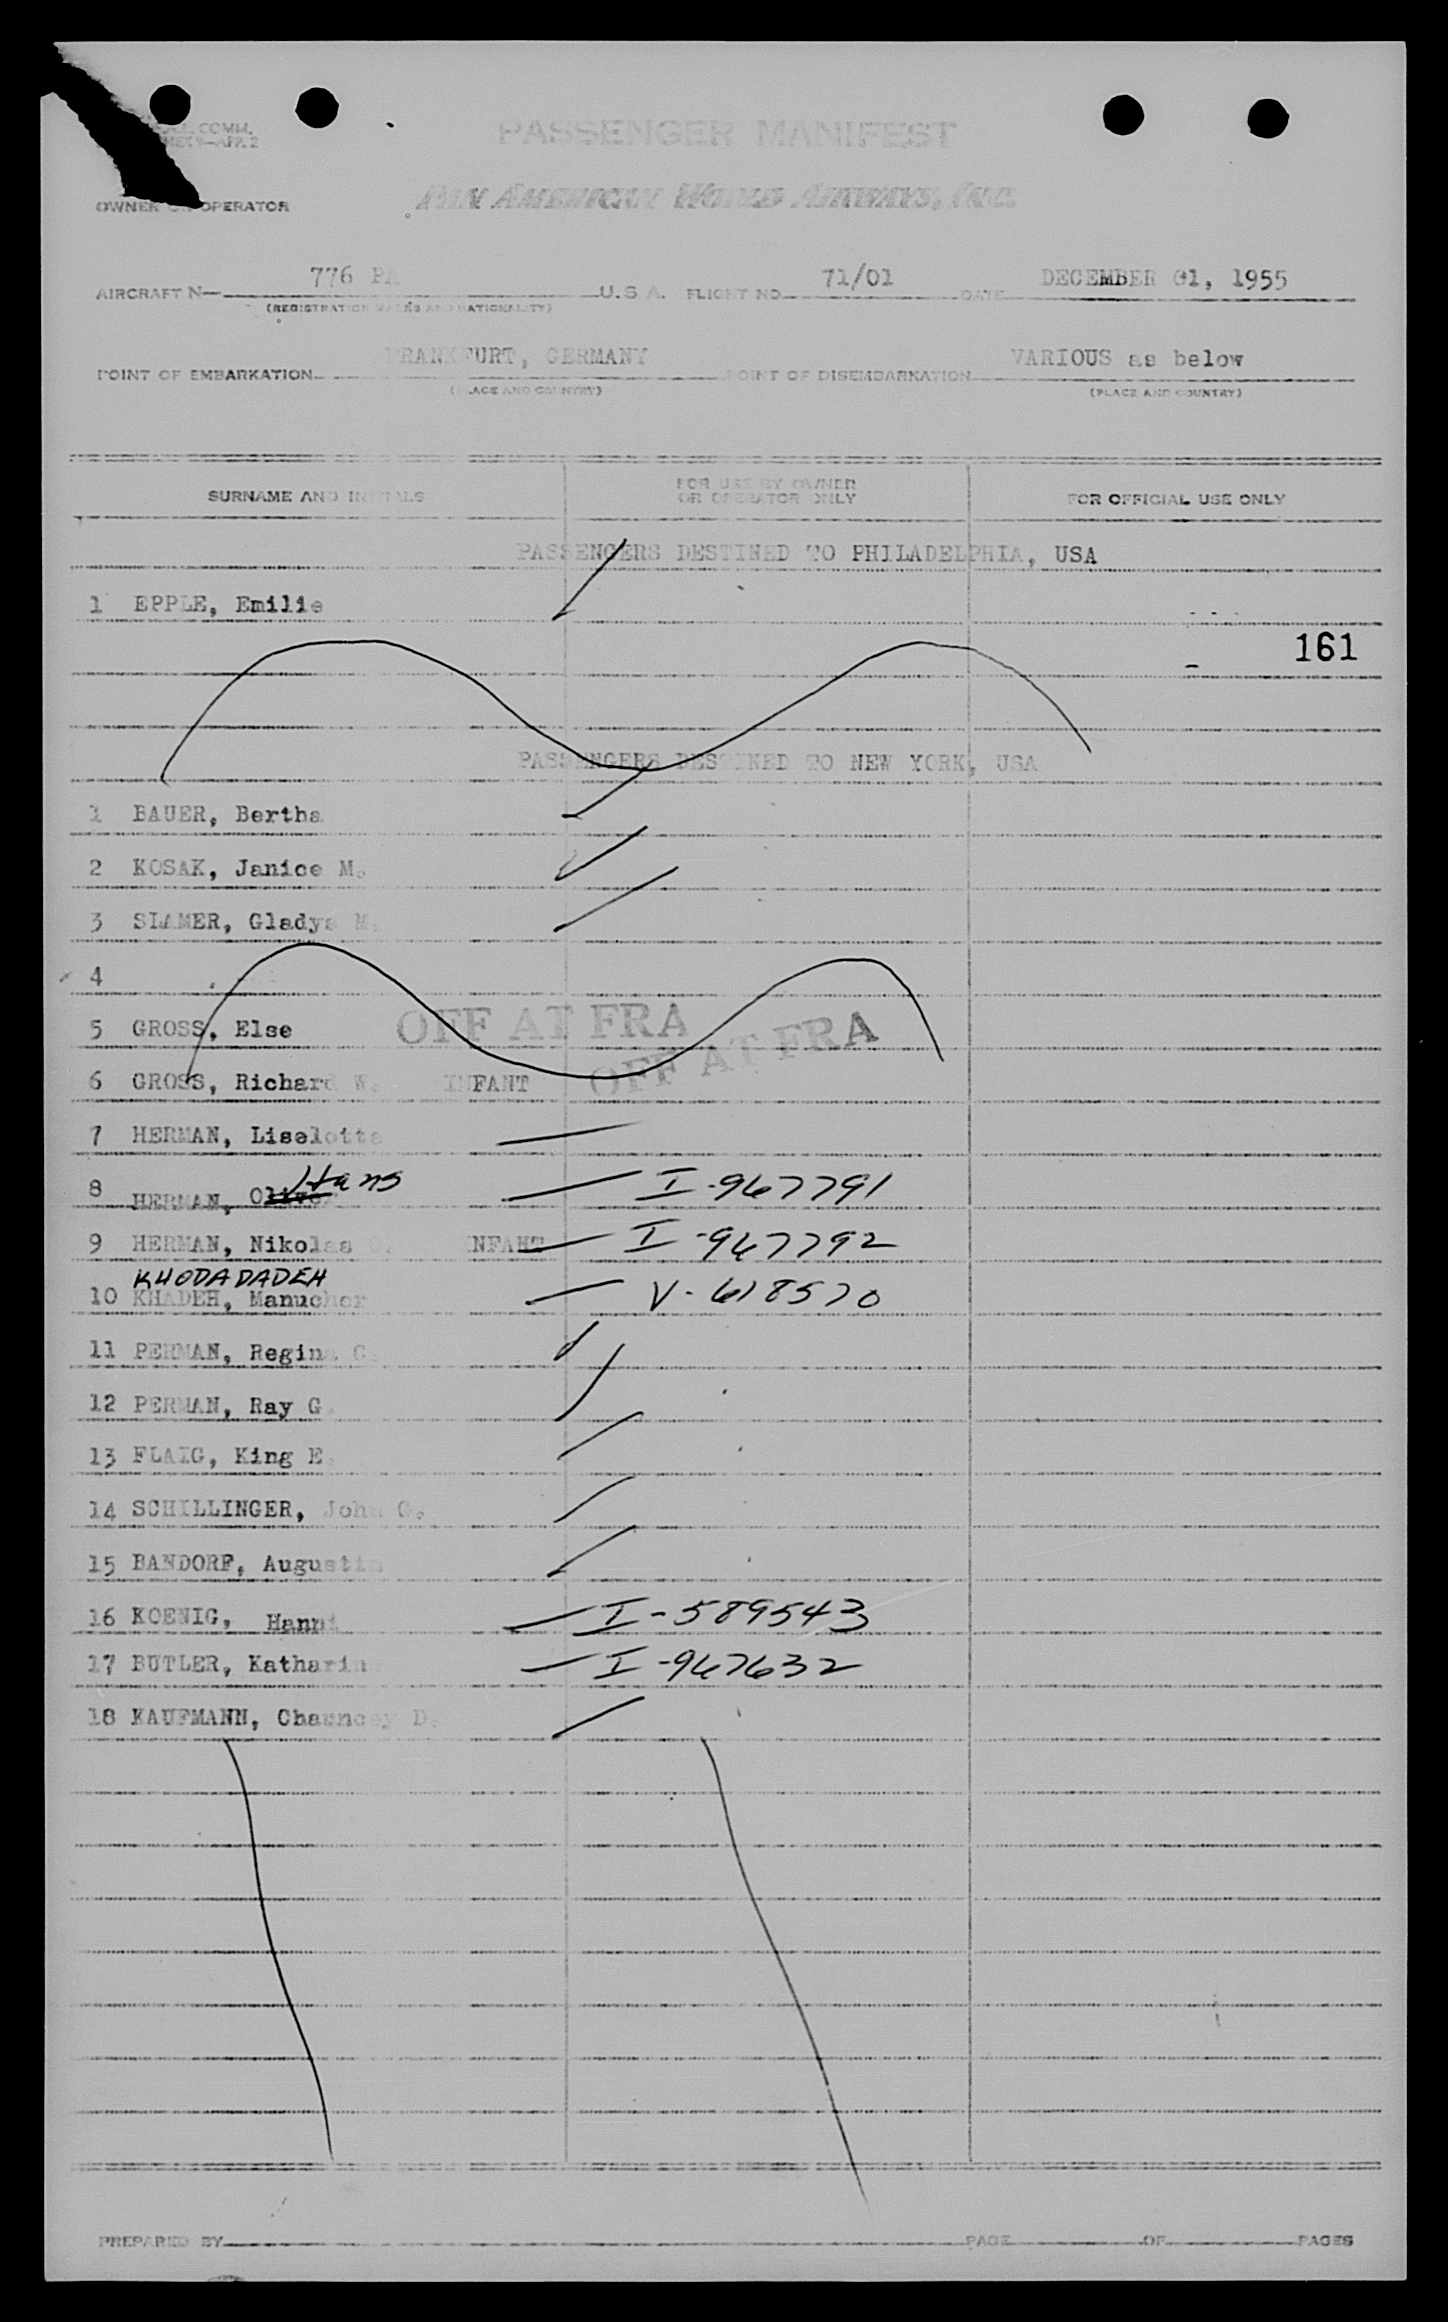 COMM.
PASSENGER MANIFEST
OWNER OR OPERATOR
PAN AMERICAN WORLD AIRWAYS, INC.
AIRCRAFT N— 776 PA U.S.A. FLIGHT NO. 71/01 DATE DECEMBER 01, 1955
(REGISTRATION MARKS AND NATIONALITY)
POINT OF EMBARKATION FRANKFURT, GERMANY POINT OF DISEMBARKATION VARIOUS as below
(PLACE AND COUNTRY) (PLACE AND COUNTRY)
SURNAME AND INITIALS FOR USE BY OWNER OR OPERATOR ONLY FOR OFFICIAL USE ONLY
PASSENGERS DESTINED TO PHILADELPHIA, USA
1 EPPLE, Emilie
161
PASSENGERS DESTINED TO NEW YORK, USA
1 BAUER, Bertha
2 KOSAK, Janice M.
3 SLAMER, Gladys M.
4
5 GROSS, Else OFF AT FRA
6 GROSS, Richard W. INFANT OFF AT FRA
7 HERMAN, Liselotte
Hans
8 HERMAN, Oliver I-967791
9 HERMAN, Nikolas O. INFANT I-967792
KHODADADEH
10 KHADEH, Manucher V-618570
11 PERMAN, Regina C.
12 PERMAN, Ray G.
13 FLAIG, King E.
14 SCHILLINGER, John G.
15 BANDORF, Augustin
16 KOENIG, Hanni I-589543
17 BUTLER, Katharina I-967632
18 KAUFMANN, Chauncey D.
PREPARED BY PAGE OF PAGES